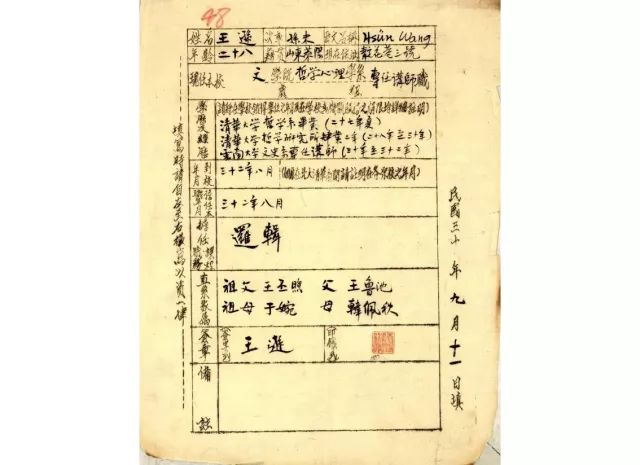 48
姓名 王遜 次章 孫史 英文姓名 Hsün Wang
年齡 二十八 籍貫 山東萊陽 現在住址 敎花巷三號
現任本校 文學院哲学心理學系 專任講師職
學歷及經歷
清華大学哲学系畢業(二十七年夏)
清華大学哲学研究所肄業二年(二十八年至三十年)
雲南大学文史系專任講師(三十年至三十二年)
三十二年八月
三十二年八月
擔任
邏輯
直系親屬
祖父 王丕照 父 王魯池
祖母 于婉 母 韓佩秋
簽章 王遜
備
註
填寫時請自左至右橫寫以資一律
民國三十 年 九 月 十一 日填